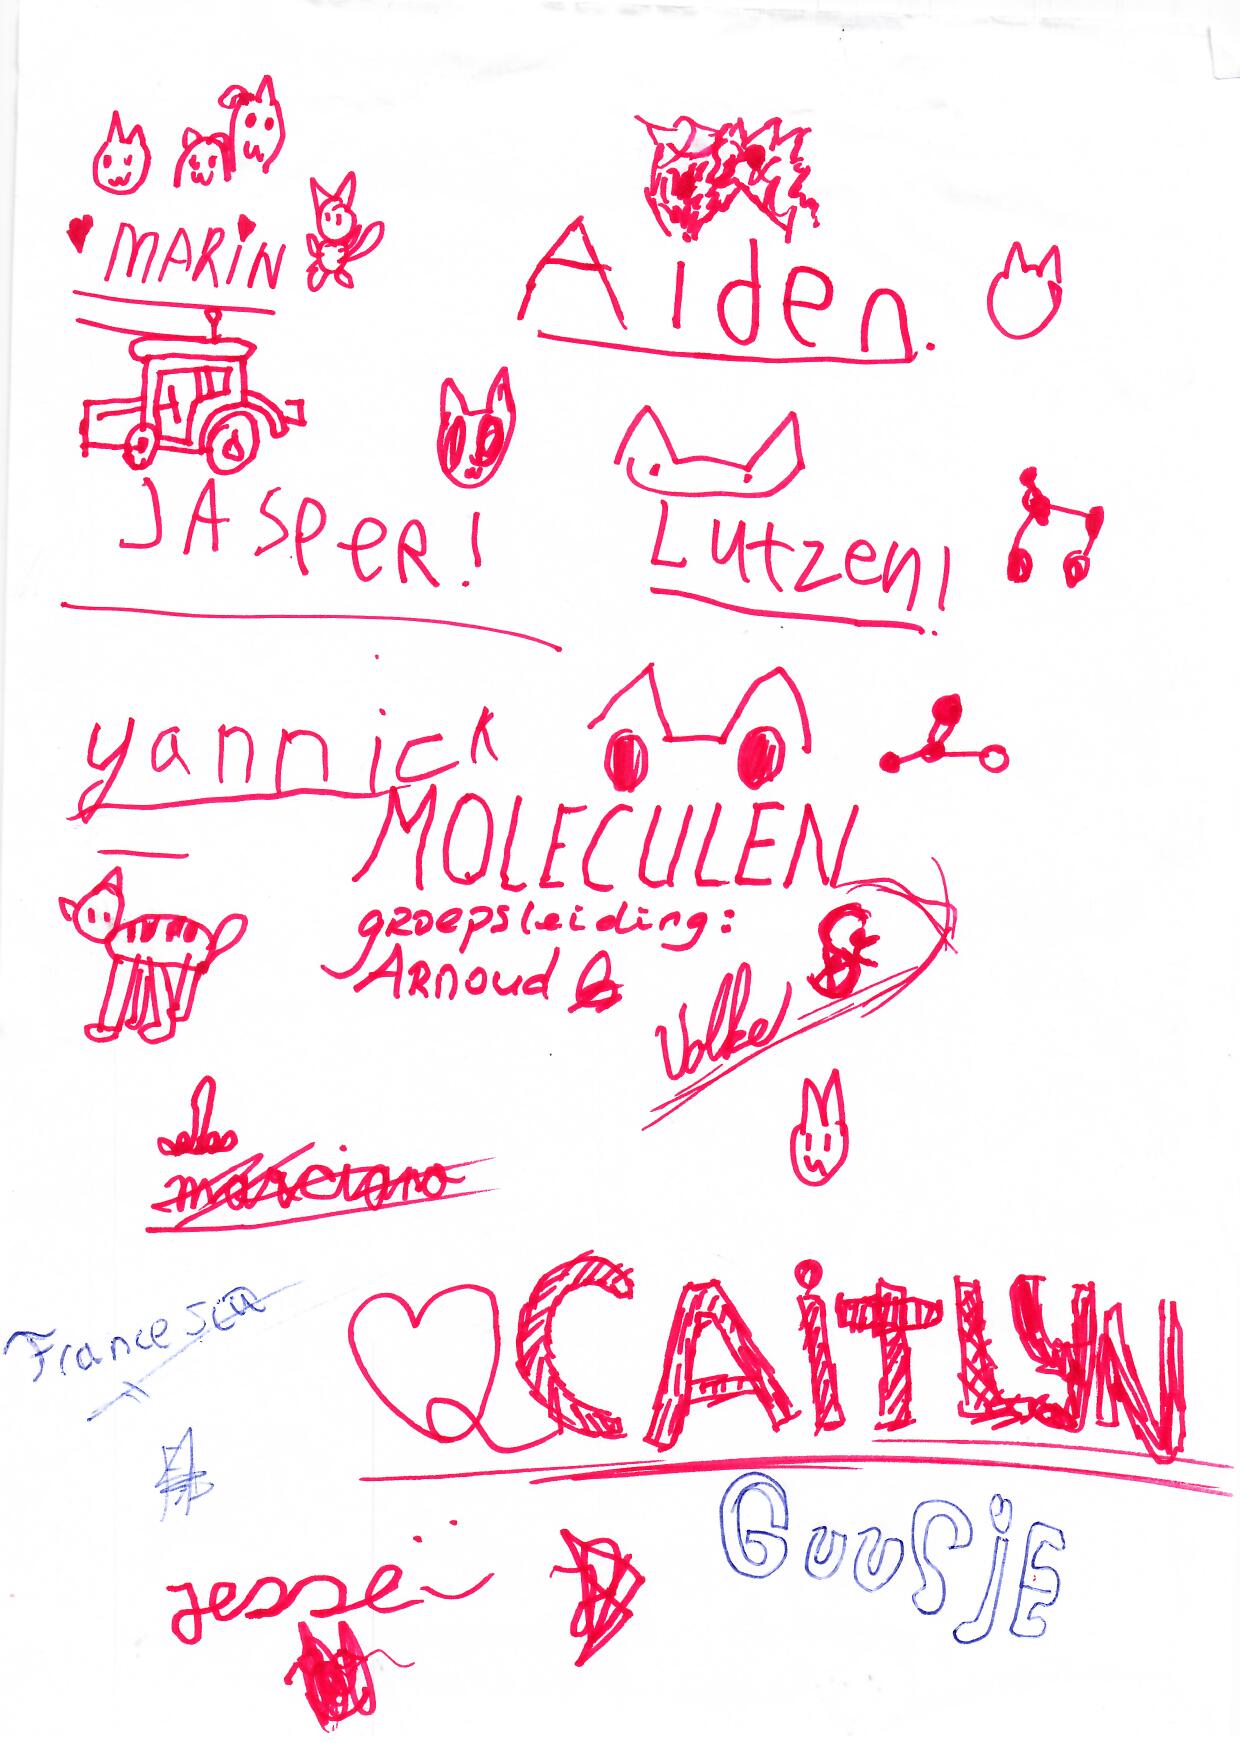 MARiN
Aiden.
JASPeR!
Lutzen!
yannick
MOLECULEN
groepsleiding:
ARnoud
Volker
marciano
Francesca
CAiTLYN
GuuSjE
jesse